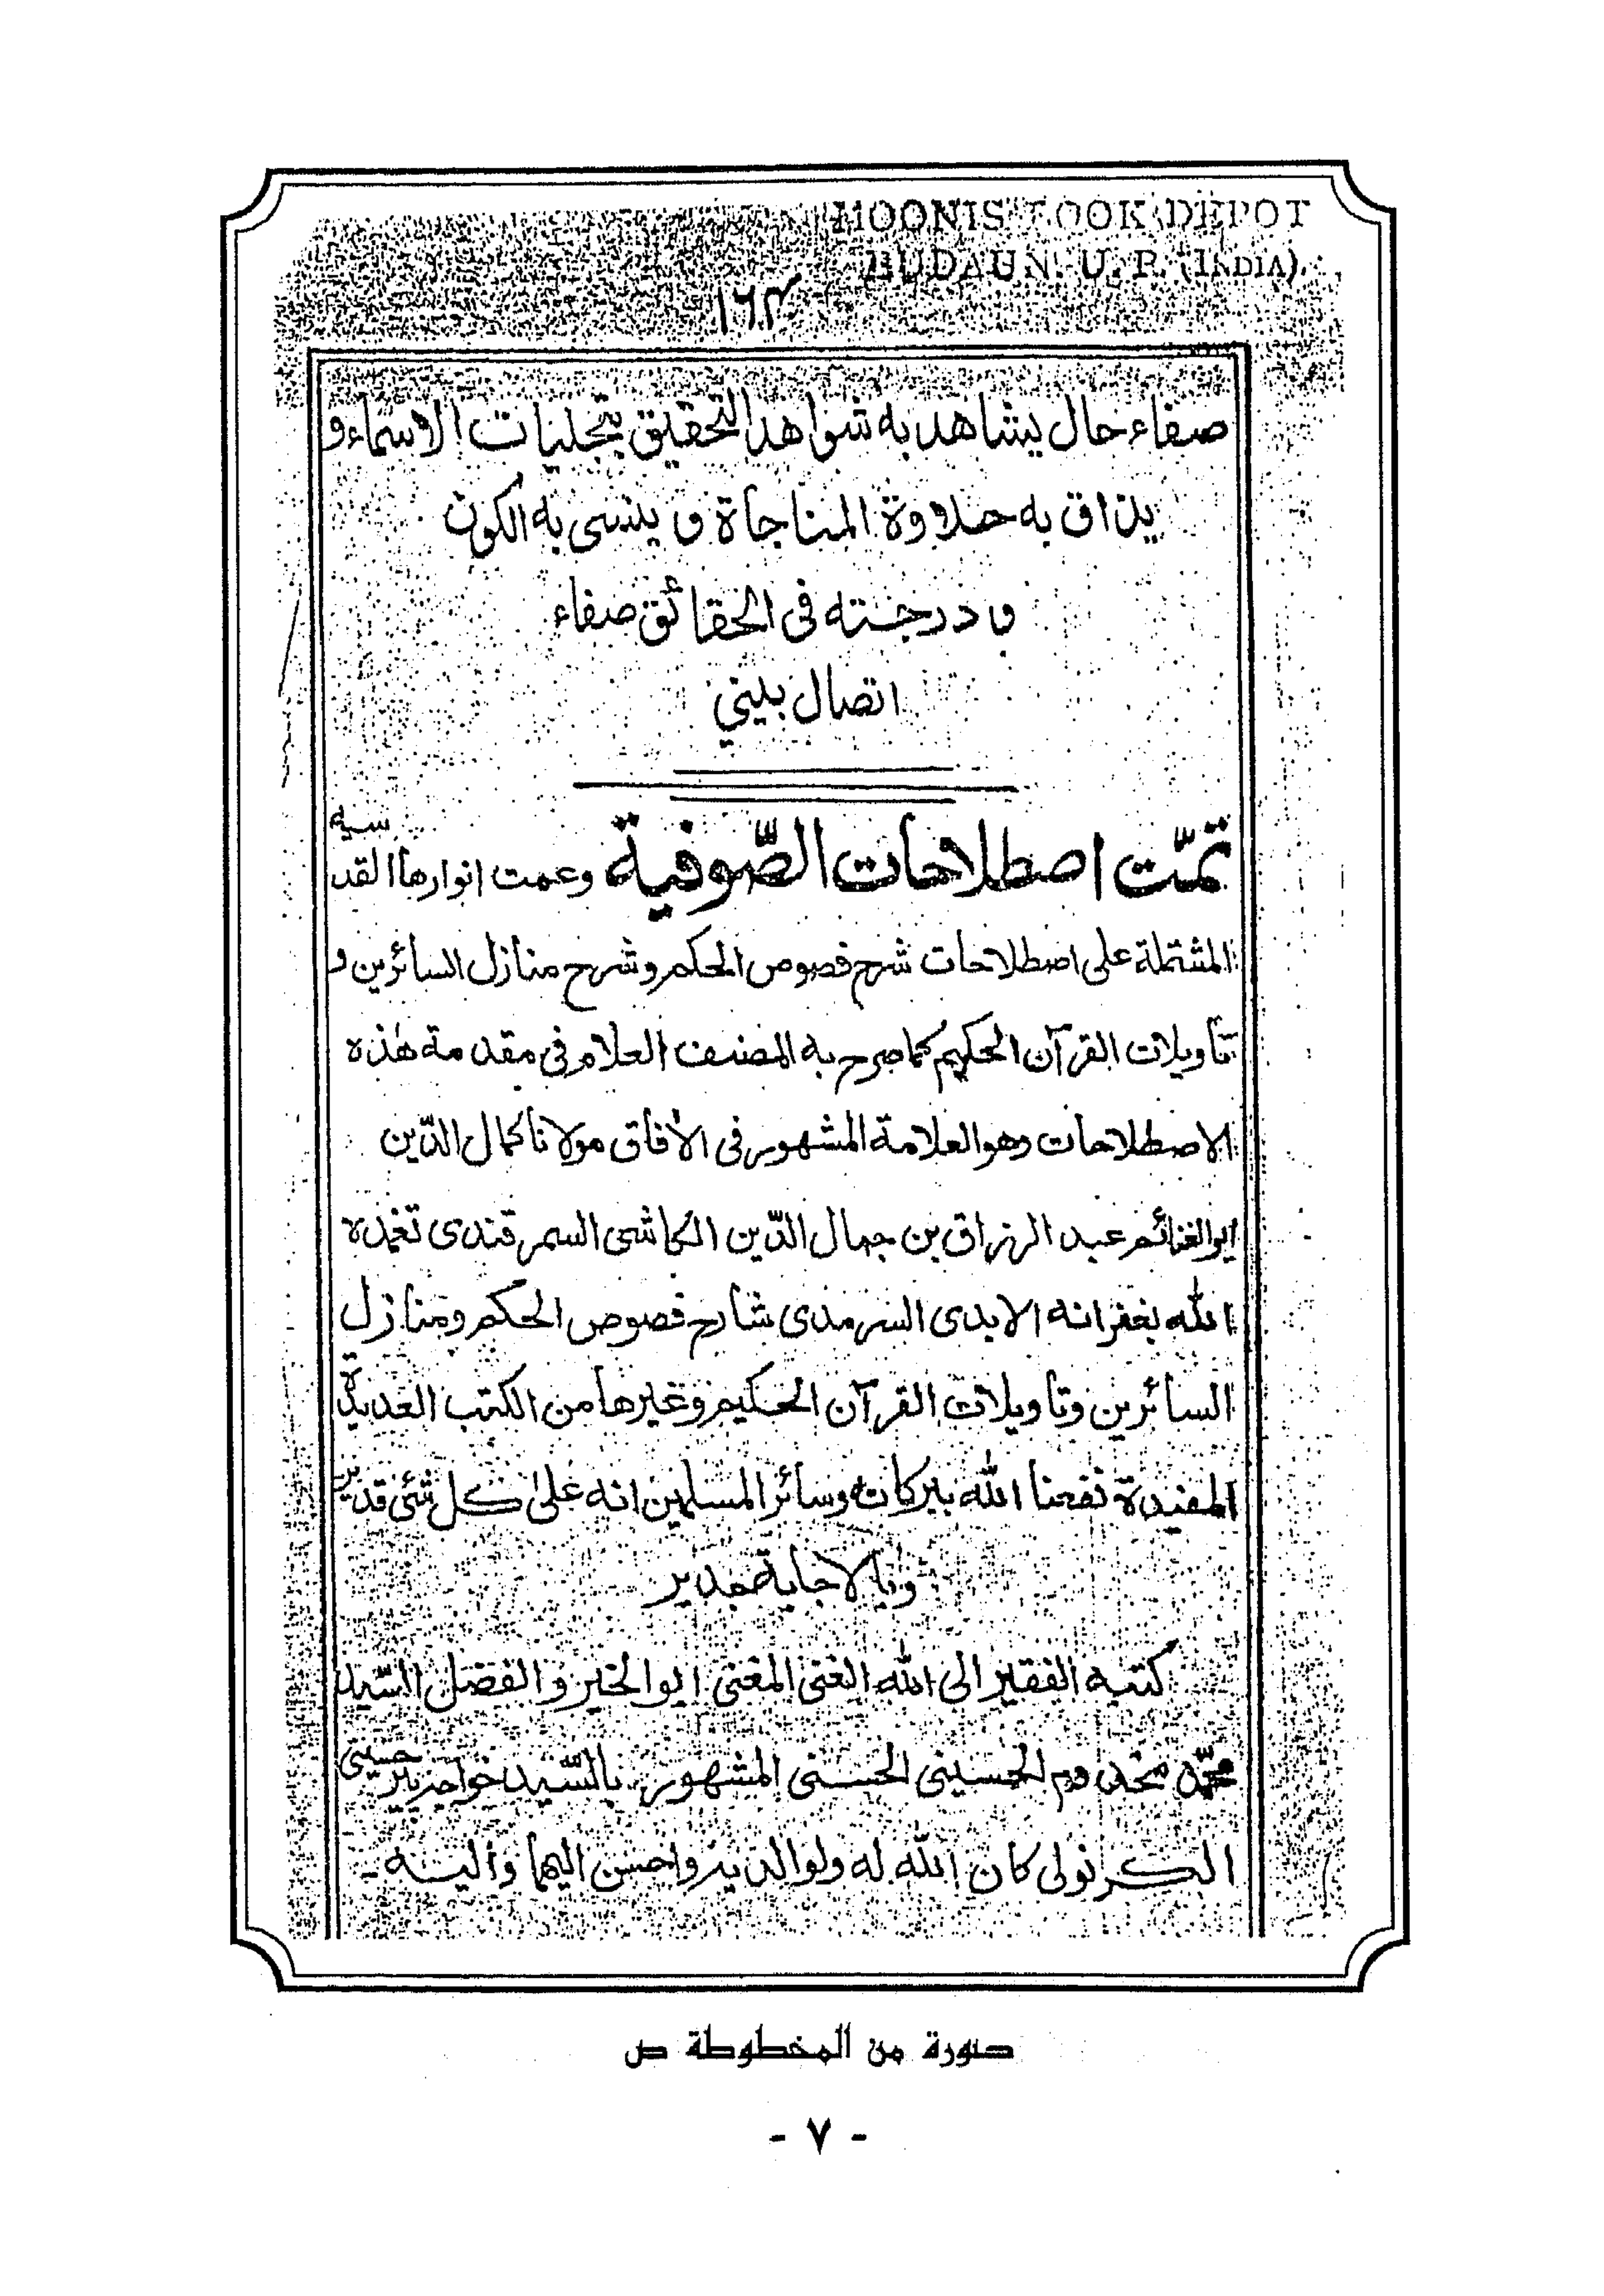 MOONIS BOOK DEPOT
BUDAUN. U. P. (INDIA).
صفاء حال يشاهد به شواهد التحقيق بتجليات الاسماء و
يذاق به حلاوة المناجاة و ينسى به الكون
و درجته فى الحقائق صفاء
اتصال بينى
تمّت اصطلاحات الصّوفية وعمت انوارها القدسيه
المشتملة على اصطلاحات شرح فصوص الحكم وشرح منازل السائرين و
تأويلات القرآن الحكيم كما صرح به المصنف العلام فى مقدمة هذه
الاصطلاحات وهو العلامة المشهور فى الأفاق مولانا كمال الدّين
ابو الغنائم عبد الرزاق بن جمال الدّين الكاشى السمرقندى تغمده
الله بغفرانه الابدى السرمدى شارح فصوص الحكم ومنازل
السائرين وتاويلات القرآن الحكيم وغيرها من الكتب العديدة
المفيدة نفعنا الله ببركاته وسائر المسلمين انه على كل شئ قدير
وبالاجابة جدير
كتبه الفقير الى الله الغنى المغنى ابو الخير و الفضل السّيد
محمّد مخدوم الحسينى الحسنى المشهور بالسّيد خواجه پير حسينى
الكرنولى كان الله له ولوالديه واحسن اليهما واليه -
صورة من المخطوطة ص
- ٧ -